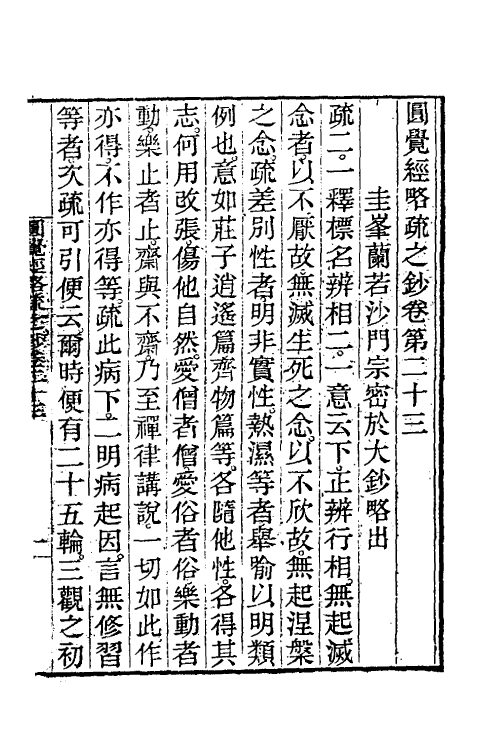 圓覺經略疏之鈔卷第二十三
圭峯蘭若沙門宗密於大鈔略出
疏二。一釋標名辨相二。一意云下。正辨行相。無起滅
念者。以不厭故。無滅生死之念。以不欣故。無起涅槃
之念。疏差別性者。明非實性。熱濕等者。舉喻以明類
例也。意如莊子逍遙篇齊物篇等。各隨他性。各得其
志。何用改張。傷他自然。愛僧者僧。愛俗者俗。樂動者
動。樂止者止。齋與不齋。乃至禪律講說。一切如此。作
亦得。不作亦得等。疏此病下。二明病起因。言無修習
等者。次疏可引便云。爾時便有二十五輪。三觀之初
圓覺經略疏之鈔卷二十三
一